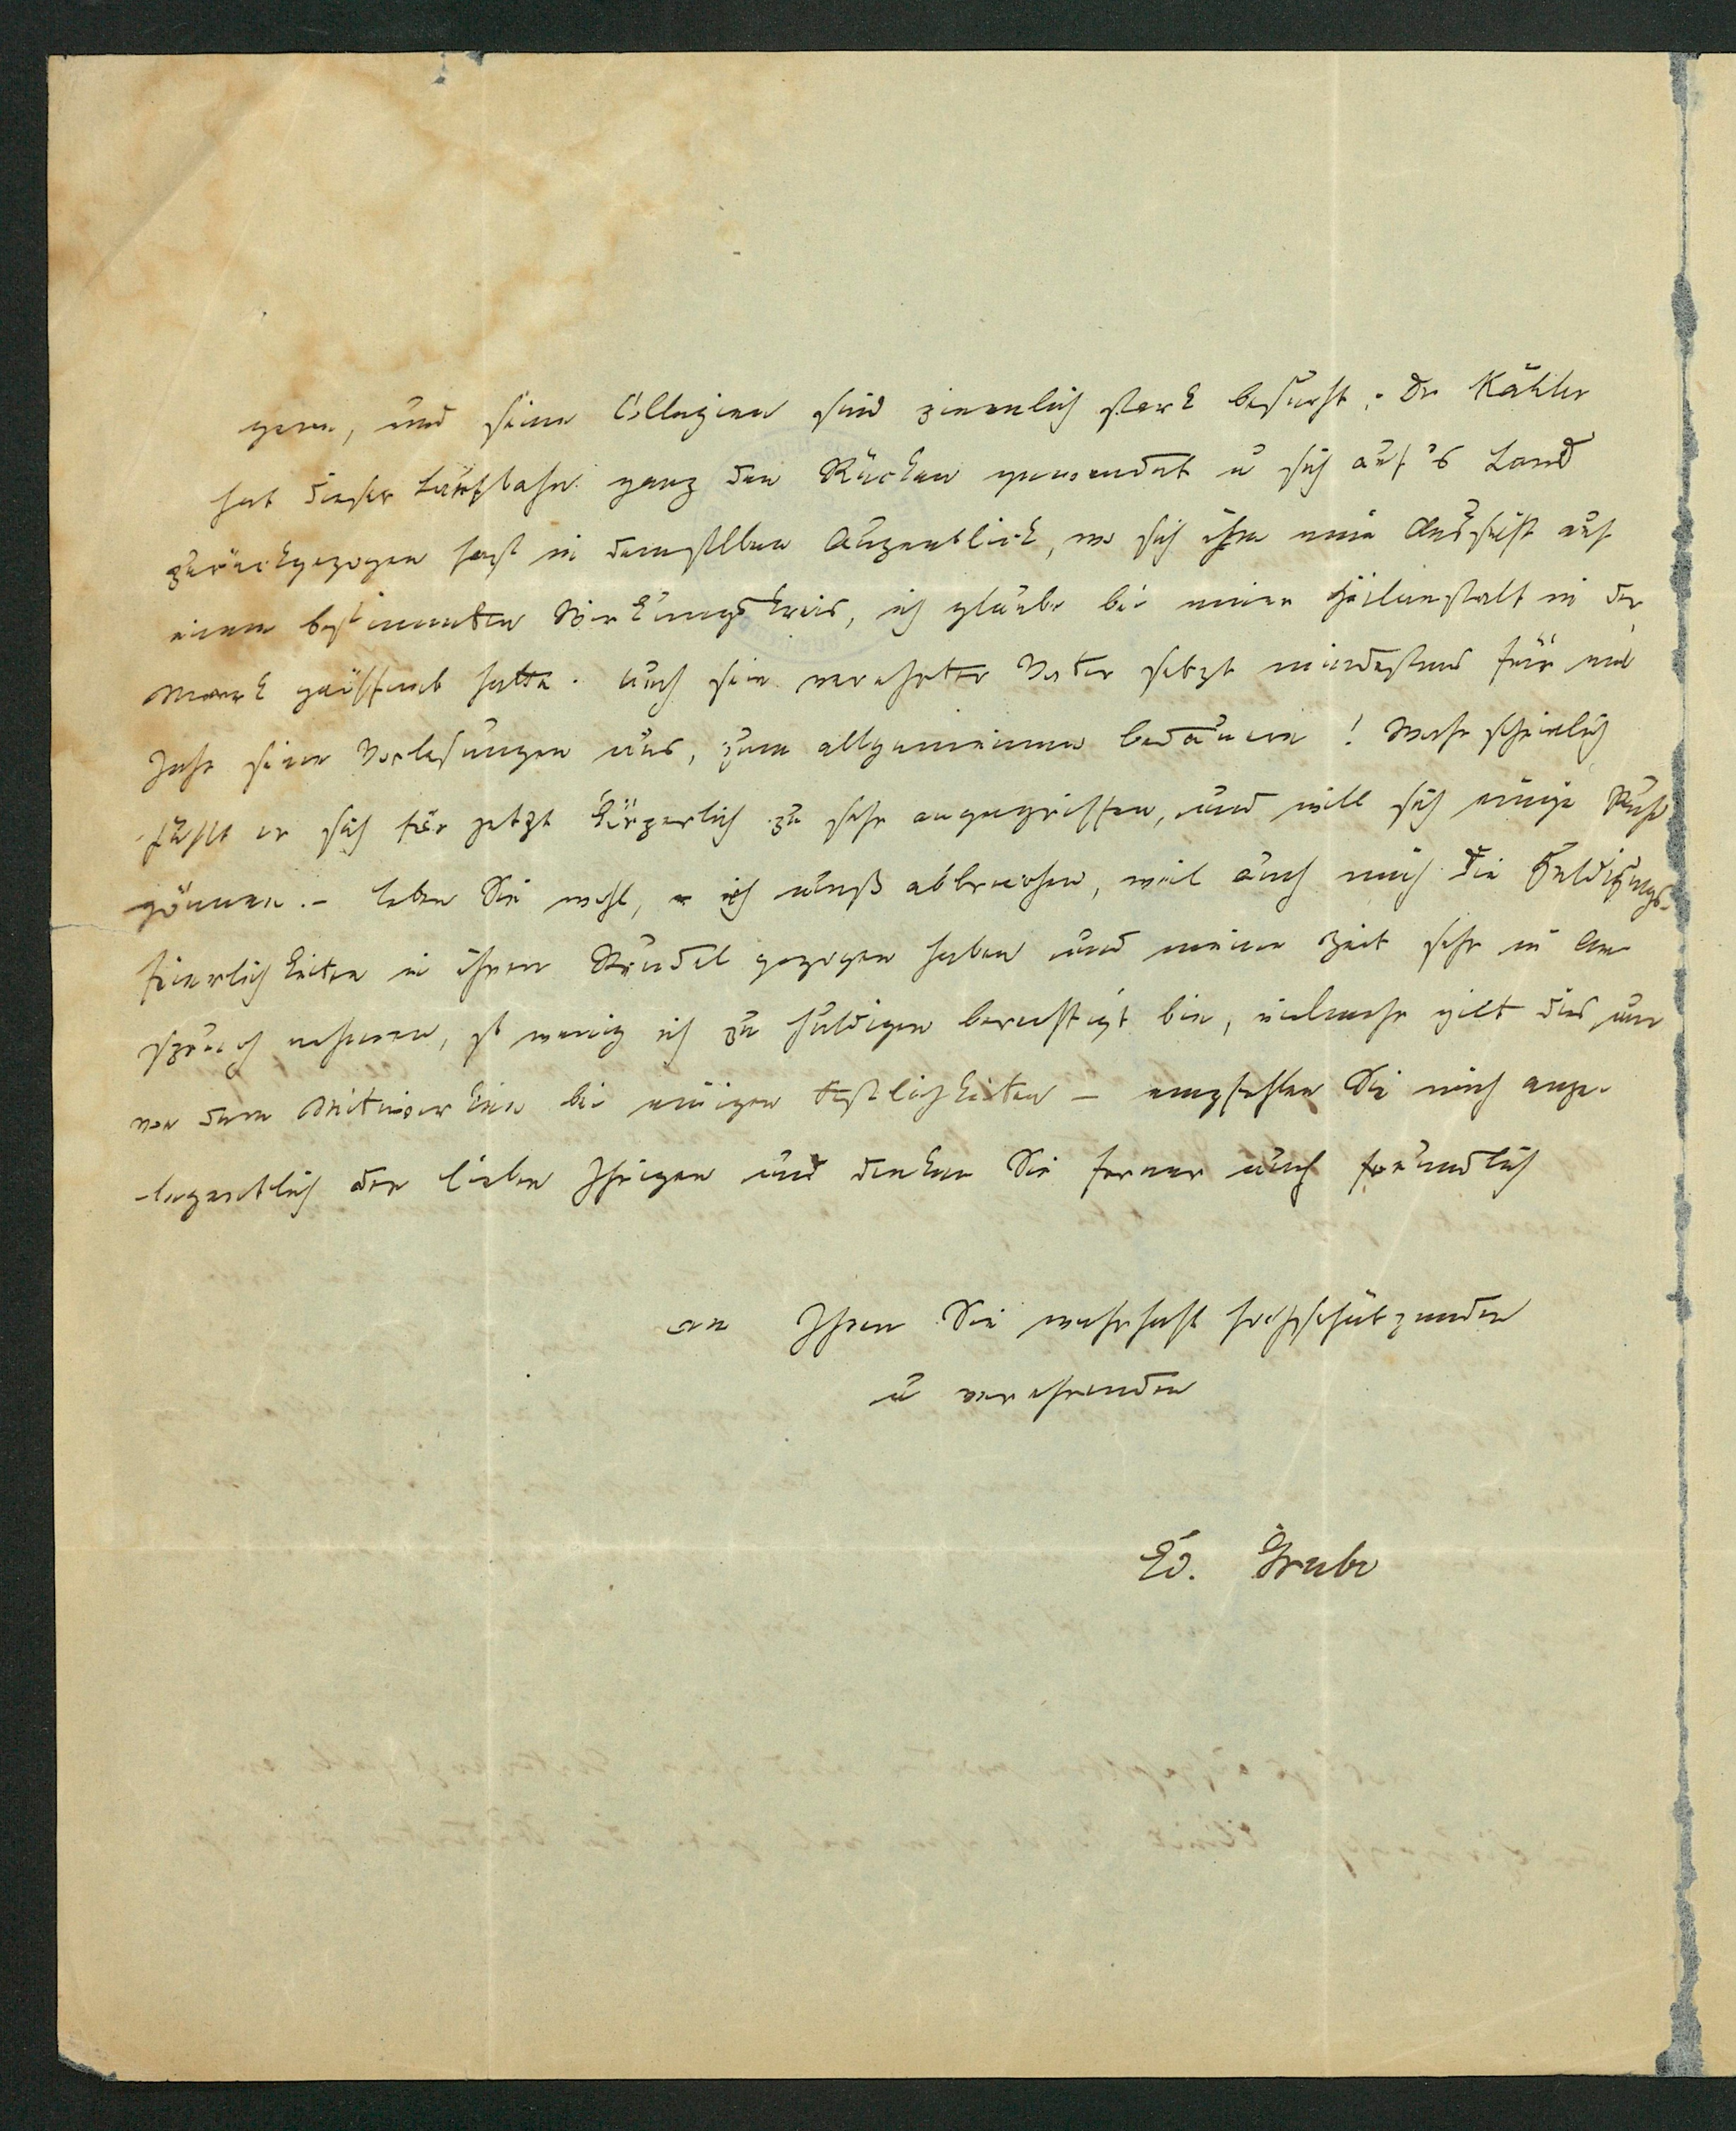 gern, und seine Collegien sind ziemlich stark besucht; Dr Kähler
hat dieser Laufbahn ganz den Rücken gewendet u sich auf's Land
zurückgezogen fast in demselben Augenblick, wo sich ihm eine Aussicht auf
einen bestimmten Wirkungskreis, ich glaube bei einer Heilanstalt in der
Mark geöffnet hatte. Auch sein verehrter Vater setzt mindestens für ein
Jahr seine Vorlesungen aus, zum allgemeinen Bedauern! Wahrscheinlich
fühlt er sich für jetzt körperlich zu sehr angegriffen, und will sich einige Ruhe
gönnen. – Leben Sie wohl, ich muß abbrechen, weil auch mich die Huldigungs-
feierlichkeiten in ihren Strudel gezogen haben und meine Zeit sehr in An-
spruch nehmen, so wenig ich zu huldigen berechtigt bin, vielmehr gilt dies nur
von dem Mitwirken bei einigen Festlichkeiten – empfehlen Sie mich ange-
legentlich den lieben Ihrigen und denken Sie ferner auch freundlich
an Ihren Sie wahrhaft hochschätzenden
u verehrenden
Ed. Grube